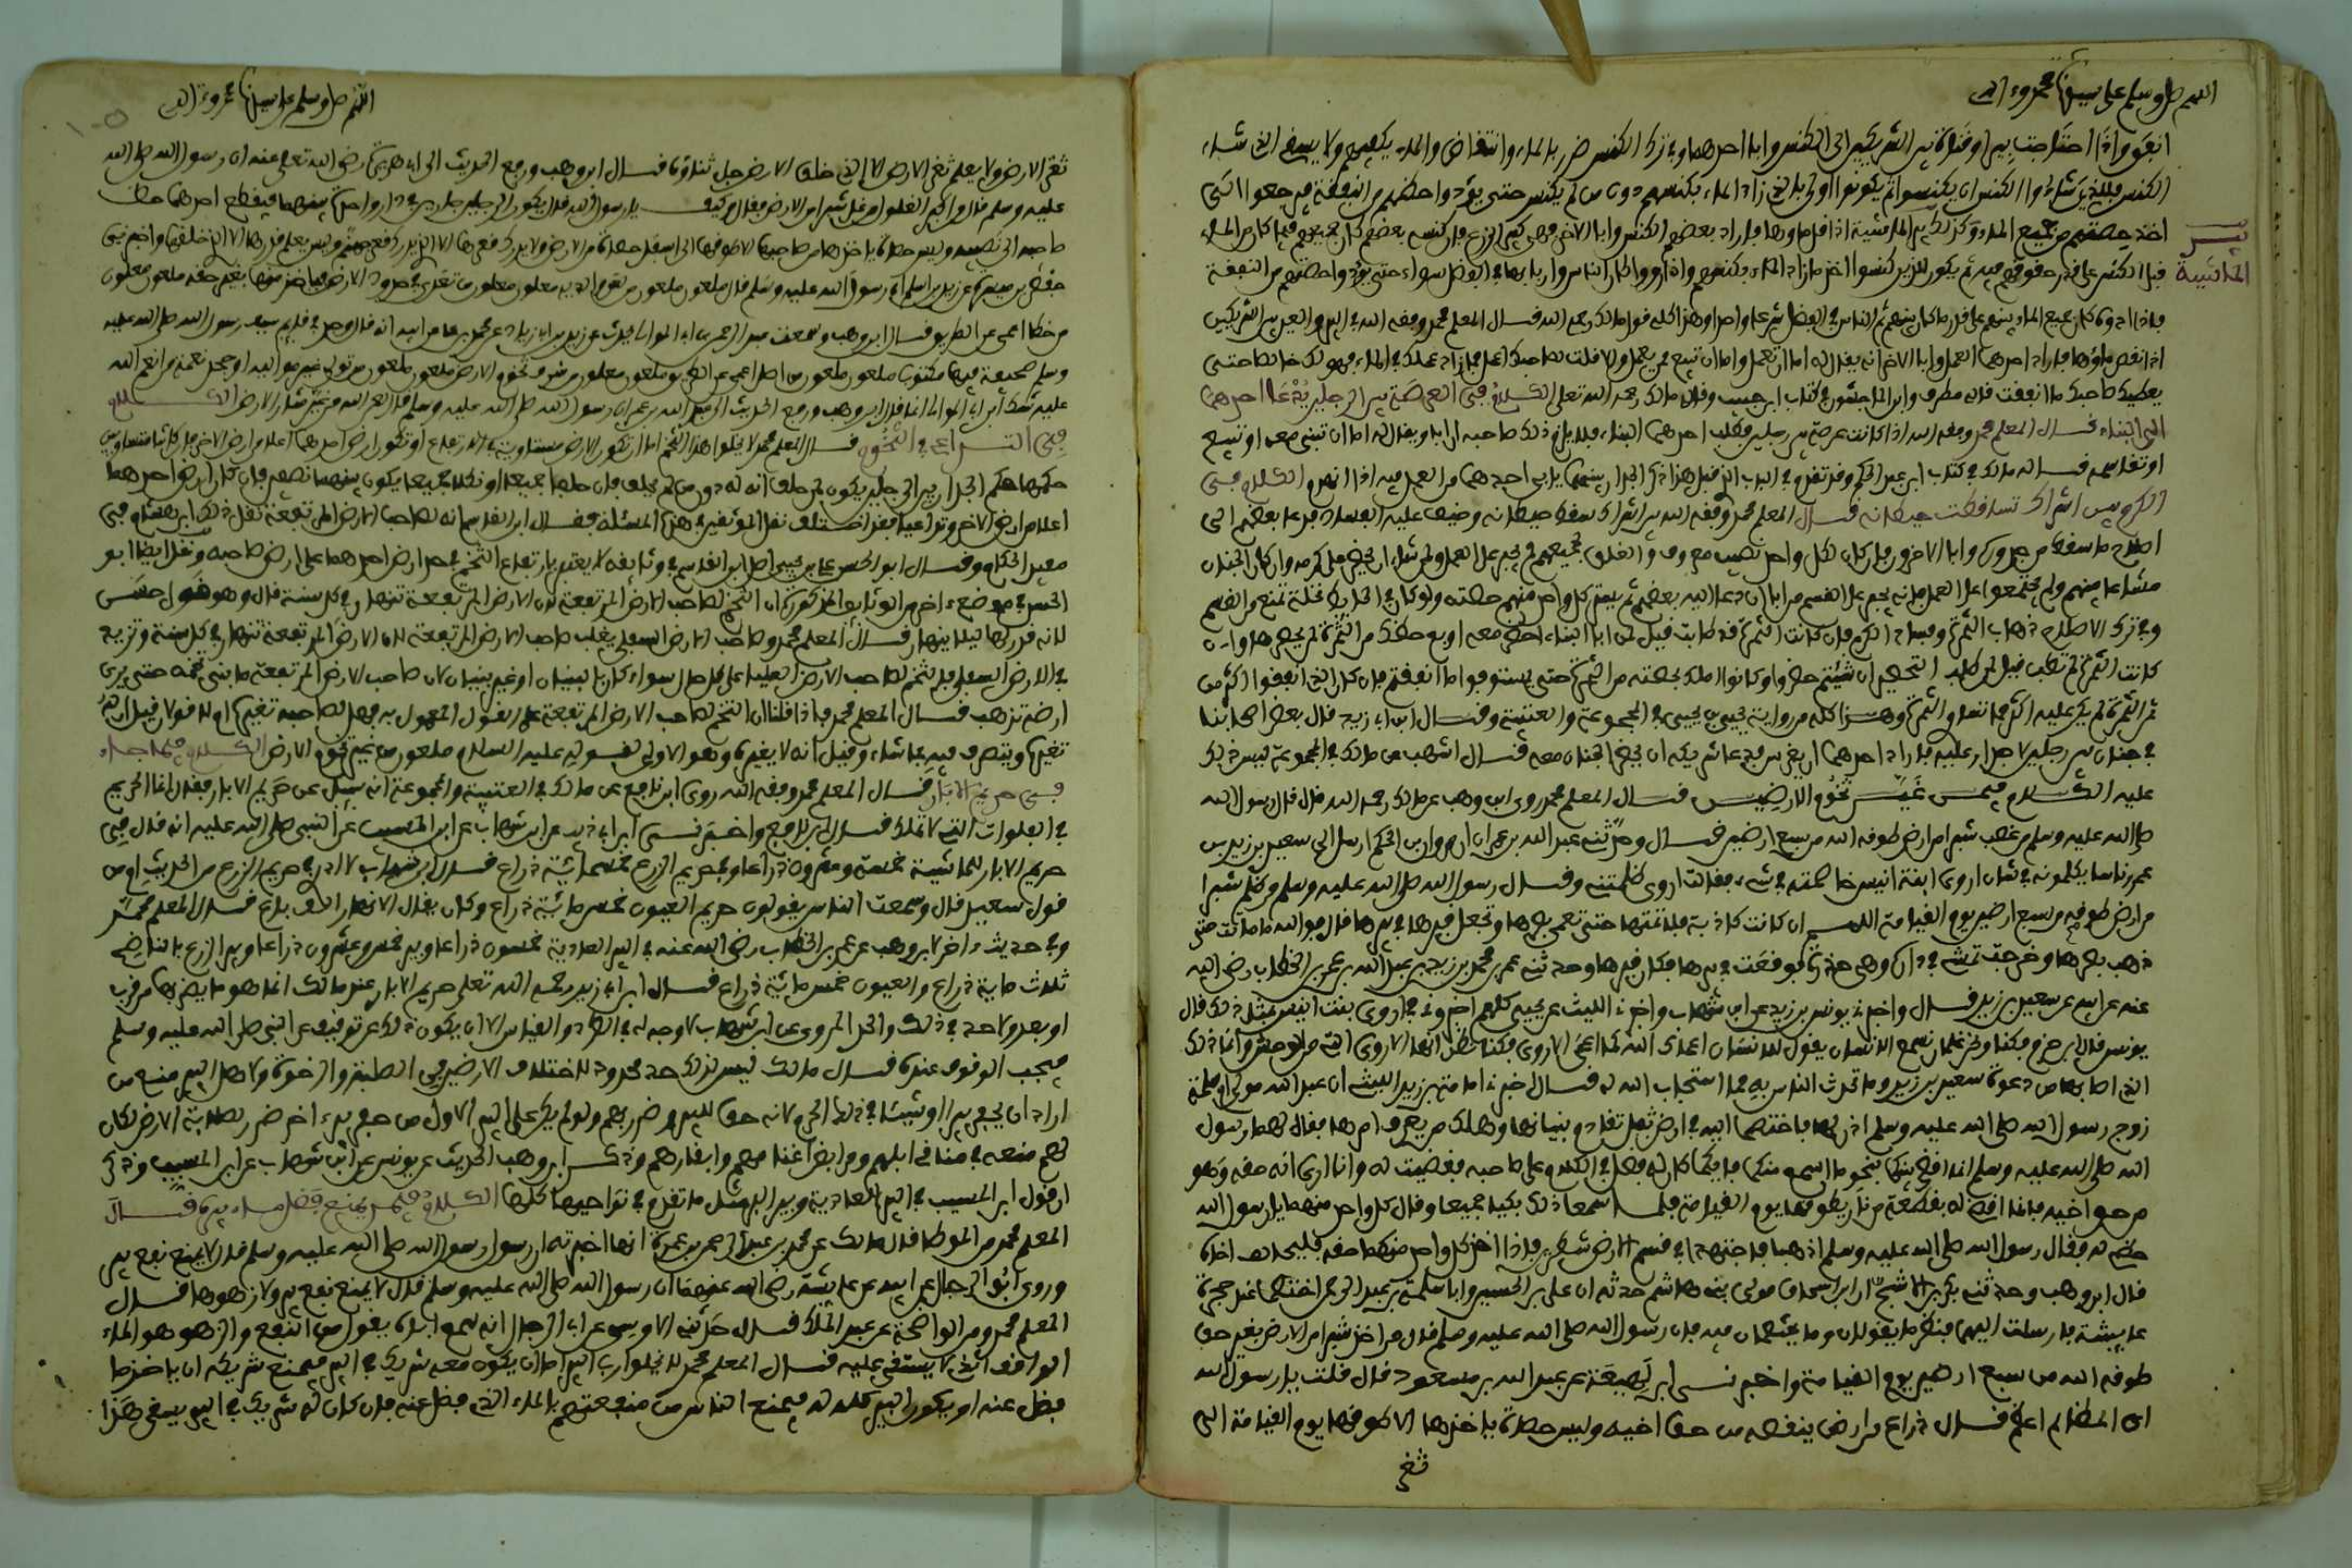 اللهم صل وسلم على سيدنا محمد وءاله
انفقوا واذا احتاجت بير او قناة بين الشريكين الى الكنس وابا احدهما وفي ترك الكنس ضرر بالماء وانتقاص والماء يكفيهم ولا يسقي الذي شاء
الكنس فللذي شاؤا الكنس ان يكنسوا ثم يكونوا اولى بالذي زاد الماء بكنسهم دون من لم يكنس حتى يؤدوا حظهم من النفقة فيرجعوا الى
اخذ حصتهم من جميع الماء وكذلك بير الماشية اذا قل ماؤها فاراد بعضهم الكنس وابا الاخر فهي كبير الزرع فان كنسه بعضهم كان جميعهم فيما كان من الماء
بير
الماشية
قبل الكنس على قدر حقوقهم فيه ثم يكون للذين كنسوا الخ ما زاد الماء بكنسهم واذا رووا كان الناس واربابها في الفضل سواء حتى يؤدوا حصتهم من النفقة
فاذا ادوا كان جميع الماء بينهم على قدر ما كان بينهم ثم الناس في الفضل شرعا واحدا وهذا كله قول مالك رحمه الله قال المعلم محمد وفقه الله في البير والعين بين الشريكين
اذا نقص ماؤها فاراد احدهما العمل وابا الاخر انه يقال له اما ان تعمل واما ان تبيع ممن يعمل والا قلت لصاحبك اعمل فما زاد عملك في الماء فهو لك خالصا حتى
يعطيك صاحبك ما انفقت قاله مطرف وابن الماجشون في كتاب ابن حبيب وقاله مالك رحمه الله تعلى الكلام في العرصة بين الرجلين يدعا احدهما
الى البناء قال المعلم محمد وفقه الله اذا كانت عرصة بين رجلين فطلب احدهما البناء فلا يلزم ذلك صاحبه ان ابا ويقال له اما ان تبني معه او تبيع
او تقاسم قاله مالك في كتاب ابن عبد الحكم وقد تقدم في الباب الذي قبل هذا ذكر الجدار بينهما يابى احدهما من العمل فيه اذا انهدم الكلام في
الكرم بين اشراك تساقطت حيطانه قال المعلم محمد وفقه الله بين اشراك سقط حيطانه وخيف عليه الفساد فدعا بعضهم الى
اصلاح ما سقط من جدره وابا الاخرون فان كان لكل واحد نصيب معروف والغلق يجمعهم لم يجبر على العمل ولمن شاء ان يحضر فليكرمه وان كان الجنان
مشاعا بينهم ولم يجتمعوا على العمل فانه يجبر على القسم من ابا ان دعا اليه بعضهم ثم يعمر كل واحد منهم حصته ولو كان في الحائط غلة تمنع من القسم
وفي ترك الاصلاح ذهاب الثمر وفساد الكرم فان كانت الثمرة قد طابت قيل لمن ابا البناء احظر معه او بع حظك من الثمرة ممن يحظرها وان
كانت الثمرة لم تطب قيل لمن طلب التحظير ان شئتم حظروا وكانوا املك بحصته من الثمرة حتى يستوفوا ما انفقتم فان كان الذي انفقوا اكثر من
ثمن الثمرة لم يكن عليه اكثر مما تساوي الثمرة وهذا كله من رواية يحيى بن يحيى في المجموعة والعتبية وقال ابن ابي زيد قال بعض اصحابنا
في جنان بين رجلين لا جدار عليه فاراد احدهما ان يغرس فدعا شريكه ان يحظر الجنان معه قال اشهب عن مالك في المجموعة ليس ذلك
عليه الكلام فيمن غير تخوم الارضين قال المعلم محمد روى ابن وهب عن مالك رحمه الله قال قال رسول الله
صلى الله عليه وسلم من غصب شبرا من ارض طوقه الله من سبع ارضين قال وحدثني عبد الله بن عمر ان مروان بن الحكم ارسل الى سعيد بن زيد بن
عمر ناسا يكلمونه في شان اروى ابنة انيس خاصمته في شيء فقالت اروى ظلمتني وقال رسول الله صلى الله عليه وسلم من ظلم شبرا
من ارض طوقه من سبع ارضين يوم القيامة اللهم ان كانت كاذبة فلا تمتها حتى تعمي بصرها وتجعل قبرها في بيرها قال فوالله ما ماتت حتى
ذهب بصرها وخرجت تمشي في دارها وهي حذرة فوقعت في بيرها فكان قبرها وحدثني عمر بن محمد بن زيد بن عبد الله بن عمر بن الخطاب رضي الله
عنه عن ابيه عن سعيد بن زيد قال واخبرني يونس بن زيد عن ابن شهاب واخبرني الليث عن يحيى كلهم اخبروني في اروى بنت انيس بمثل ذلك قال
يونس قال ابن حزم فكنا ونحن غلمان نسمع الانسان يقول للانسان اعماك الله كما اعمى الاروى فكنا نظن انها الاروى التي من الوحش وانما ذلك
الذي اصابها من دعوة سعيد بن زيد وما تحدث الناس به مما استجاب الله له قال اخبرني اسامة بن زيد الليثي ان عبد الله مولى ام سلمة
زوج رسول الله صلى الله عليه وسلم اخبرها باختصما اليه في ارض قد تقادم بنيانها وهلك من يعرف امرها فقال لهما رسول
الله صلى الله عليه وسلم انما اقضي بينكما بنحو ما اسمع منكما فايكما كان له فضل في الكلام على صاحبه فقضيت له وانا ارى انه حقه وهو
من حق اخيه فانما اقضي له بقطعة من نار يطوقها يوم القيامة فلما اسمعا ذلك بكيا جميعا وقال كل واحد منهما يا رسول الله
حظي له فقال رسول الله صلى الله عليه وسلم اذهبا فاجتهدا في قسم الارض شطرين فاذا اخذ كل واحد منكما حقه فليحالل اخاه
قال ابن وهب وحدثني بكير بن الاشج ان ابا اسحاق مولى بني هاشم حدثه ان علي بن الحسين وابا سلمة بن عبد الرحمن اختصما عند حجرة
عايشة فارسلت اليهم فذكر ما يقولان وما يختصمان فيه فان رسول الله صلى الله عليه وسلم قال من اخذ شبرا من الارض بغير حق
طوقه الله من سبع ارضين يوم القيامة واخبرني ابن لهيعة عن عبد الله بن مسعود قال قلت يا رسول الله
اي المظالم اعظم قال ذراع من ارض ينقصه من حق اخيه وليس حصاة ياخذها الا طوقها يوم القيامة الى
ثخر
اللهم صل وسلم على سيدنا محمد وءاله
ثقر الارض ولا يعلم ثقر الارض الا الذي خلق الارض جل ثناؤه قال ابن وهب ورفع الحديث الى ابي هريرة رضي الله تعلى عنه ان رسول الله صلى الله
عليه وسلم قال من اكبر الغلول من غل شبرا من الارض فقالوا وكيف يا رسول الله قال يكون الرجلين جارين في دار واحدة بينهما فيقطع احدهما من حظ
صاحبه الى نصيبه وليس حصاة ياخذها من صاحبها الا طوقها الى اسفل حصاة من الارض ولا يدرك قعرها الا الذي
حفص بن ميسرة عن زيد بن اسلم ان رسول الله عليه وسلم قال ملعون ملعون من
من خطا اعمى عن الطريق قال ابن وهب وسمعت عبد الرحمن بن ابي الموالي يحدث
وسلم صحيفة فيها مكتوب ملعون ملعون من اضل اعمى عن الطريق ملعون ملعون من سرق تخوم الارض ملعون ملعون من تولى غير مواليه او جحد نعمة من انعم الله
عليه شك ابن ابي الموالي انما قال ابن وهب ورفع الحديث الى عبد الله بن عمر ان رسول الله صلى الله عليه وسلم قال لعن الله من غير منار الارض الكلام
في التداعي في التخوم قال المعلم محمد لا يخلوا هذا التخم اما ان تكون الارض مستاوية في الارتفاع او تكون ارض احدهما اعلا من ارض الاخر فان كانتا متساويتين
حكمها حكم الجدار بين الرجلين يكون لمن حلف انه له دون من لم يحلف فان حلفا جميعا او نكلا جميعا يكون بينهما نصفين فان كان ارض احدهما
اعلا من ارض الاخر وتداعيا فقد اختلف نقل الموثقين في هذه المسئلة فقال ابن القاسم انه لصاحب الارض المرتفعة نقل ذلك ابن هشام في
مفيد الحكام وقال ابو الحسن علي بن يحيى
الحسن في موضع ءاخر من الوثايق المذكورة ان التخم لصاحب الارض المرتفعة لان الارض المرتفعة تنهار في كل سنة قال وهو قول حسن
لانه قد رءاها ليلا ينهار قال المعلم محمد وصاحب الارض السفلى يغلب صاحب الارض المرتفعة لان الارض المرتفعة تنهار في كل سنة وتزيد
في الارض السفلى فالتخم لصاحب الارض العليا على كل حال سواء كان بالبنيان او غير بنيان لان صاحب الارض المرتفعة ما بنى تخمه حتى يرى
ارضه تذهب قال المعلم محمد فاذا قلنا ان التخم لصاحب الارض المرتفعة على القول المعمول به فهل لصاحبه تغييره ام لا قولان قيل ان له
تغييره ويتصرف فيه بما شاء وقيل انه لا يغيره وهو الاولى لقوله عليه السلام ملعون من غير تخوم الارض الكلام فيما جاء
في حريم الابار قال المعلم محمد وفقه الله روى ابن نافع عن مالك في العتبية والمجموعة انه سئل عن حريم الابار فقال انما الحريم
في الفلوات التي لا تملك قال ابن نافع واخبرني ابن ابي ذيب عن ابن شهاب عن ابن المسيب عن النبي صلى الله عليه انه قال في
حريم الابار للماشية خمسة وعشرون ذراعا وفي حريم الزرع خمسمائة ذراع قال ابن شهاب لا ادري حريم الزرع من الحديث او من
قول سعيد قال وسمعت الناس يقولون حريم العيون خمس مائة ذراع وكان يقال الانهار الف باع قال المعلم محمد
وفي حديث ءاخر لابن وهب عن عمر بن الخطاب رضي الله عنه في البير العادية خمسون ذراعا وبير خمس وعشرون ذراعا وبير الزرع بالناضح
ثلاث ماية ذراع والعيون خمس ماية ذراع قال ابن ابي زيد رحمه الله تعلى حريم الابار عند مالك انما هو ما يضر بها من قرب
او بعد ولا حد في ذلك والحد المروي عن ابن شهاب لا وجه له في النظر والقياس الا ان يكون ذلك عن توقيف عن النبي صلى الله عليه وسلم
فيجب الوقوف عنده قال مالك ليس لذلك حد محدود لاختلاف الارضين في الصلبة والرخوة ولاهل البير منع من
اراد ان يحفر بيرا او شيئا في ذلك الحريم لانه حق للبير وضرر بهم ولو لم يكن على البير الاول من حفر بير ءاخر ضرر لصلابة الارض لكان
لهم منعه في مناخ ابلهم ومرابض اغنامهم وابقارهم وذكر ابن وهب الحديث عن يونس عن ابن شهاب عن ابن المسيب وذكر
ان قول ابن المسيب في البير العادية وبير الزرع مثل ما تقدم في نواحيها كلها الكلام فيمن يمنع فضل ماء بيره قال
المعلم محمد من الموطا قال مالك عن محمد بن عبد الرحمن عن عمرة انها اخبرته ان رسول الله صلى الله عليه وسلم قال لا يمنع نقع بير
وروى ابو الرجال عن ابيه عن عايشة رضي الله عنهما ان رسول الله صلى الله عليه وسلم قال لا يمنع نقع بير ولا زهوها قال
المعلم محمد ومن الواضحة عن عبد الملك قال حدثني الاويسي عن ابي الرجال انه سمع اباه يقول من النقع والزهو هو الماء
الواقف الذي لا يسقى عليه قال المعلم محمد لا يخلوا رب البير اما ان يكون معه شريك في البير فيمنع شريكه ان ياخذ ما
فضل عنه او يكون البير كله له فيمنع الناس من منفعتهم بالماء الذي فضل عنه فان كان له شريك في البير يسقي هذا